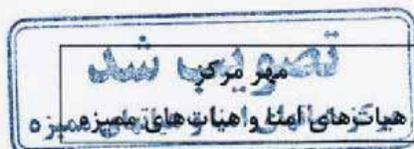 تصویب شد
مهر مرکز
هیات‌های امنا و هیات‌های ممیزه